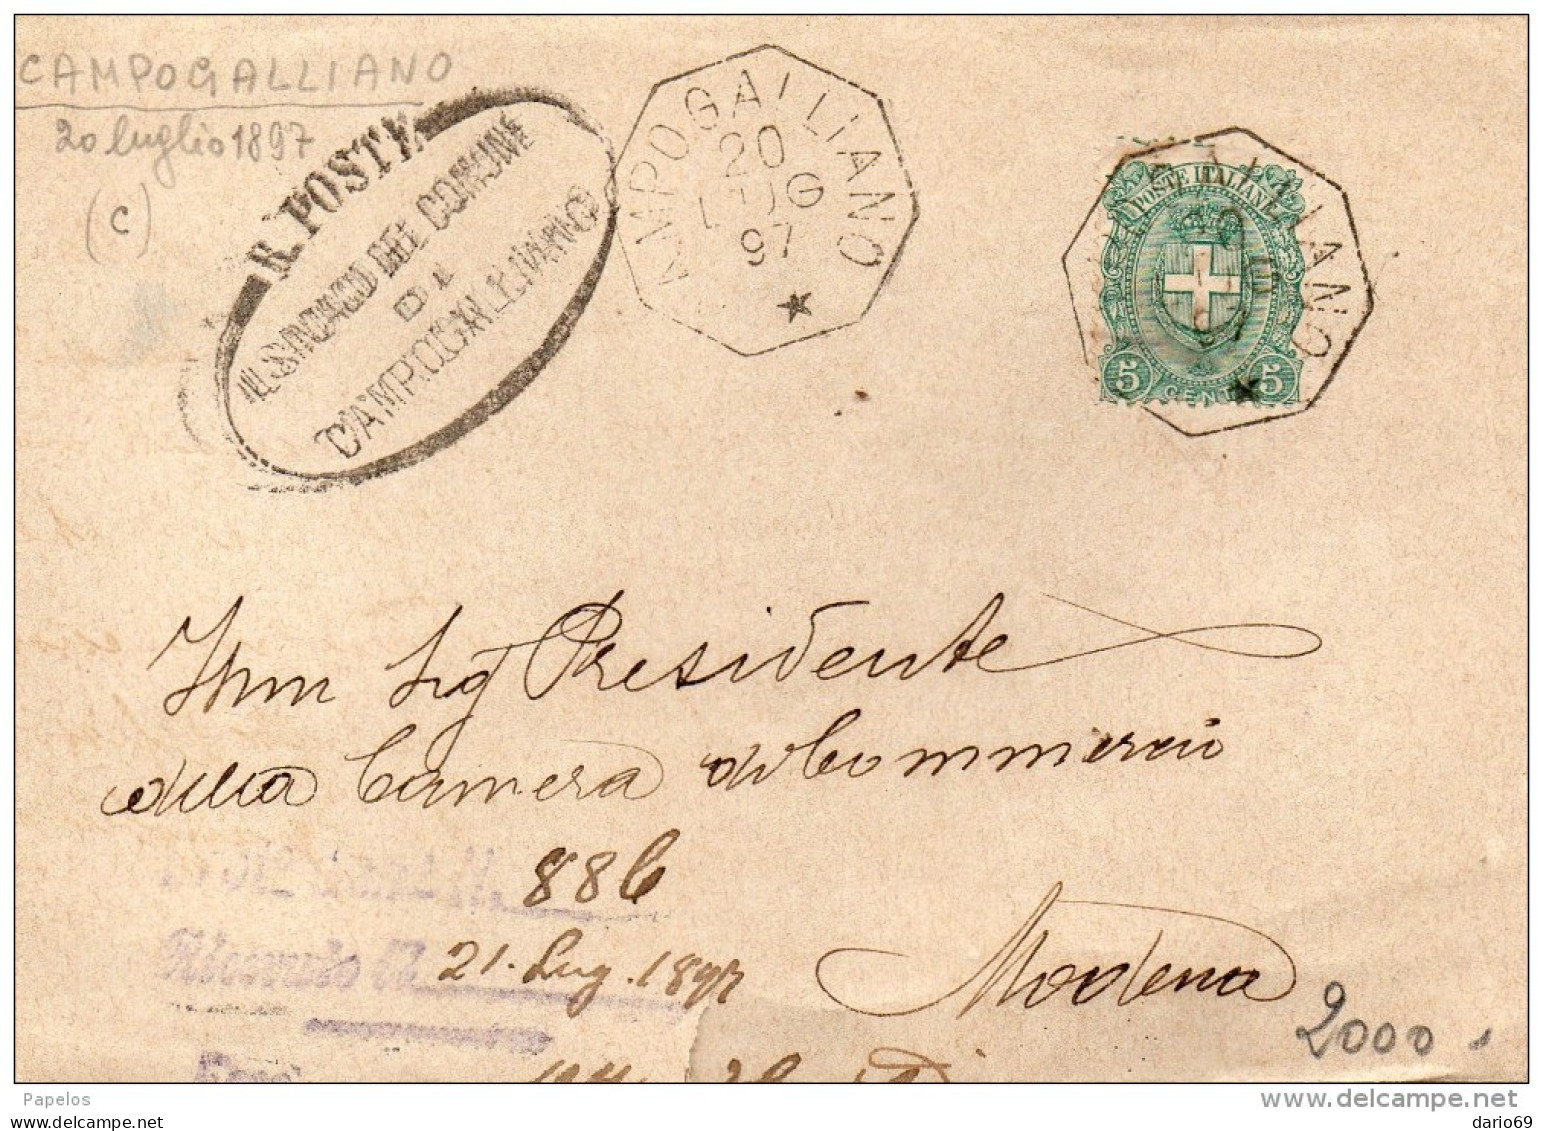 CAMPOGALLIANO
20 luglio 1897
(c)
R. POSTE
IL SINDACO DEL COMUNE
DI
CAMPOGALLIANO
CAMPOGALLIANO
20
LUG
97
POSTE ITALIANE
5 CEN 5
Illmo Sig Presidente
della Camera di Commercio
886
Ricevuto il 21. Lug. 1897
Modena
2000
Papelos
www.delcampe.net
dario69